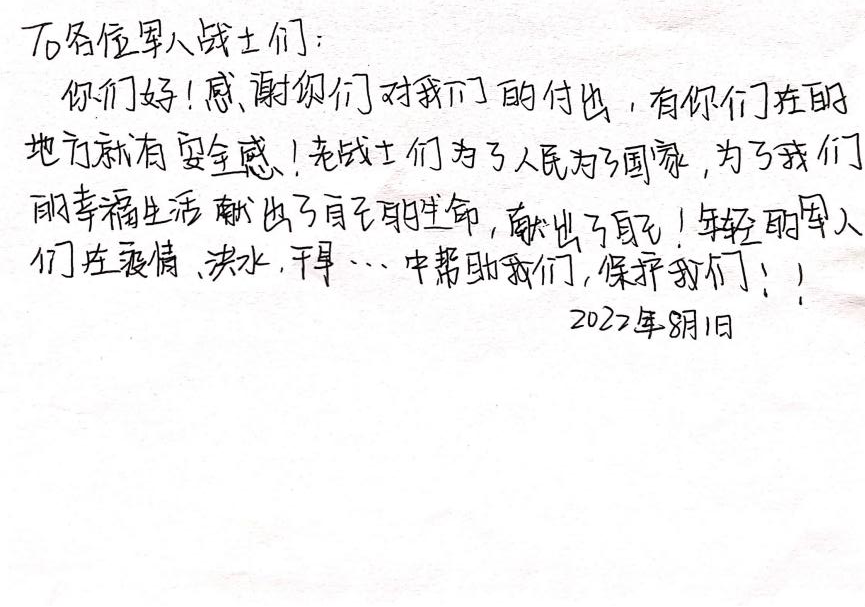 To各位军人战士们：
你们好！感谢你们对我们的付出，有你们在的
地方就有安全感！老战士们为了人民为了国家，为了我们
的幸福生活献出了自己的生命，献出了自己！年轻的军人
们在疫情、洪水、干旱…中帮助我们，保护我们！！
2022年8月1日